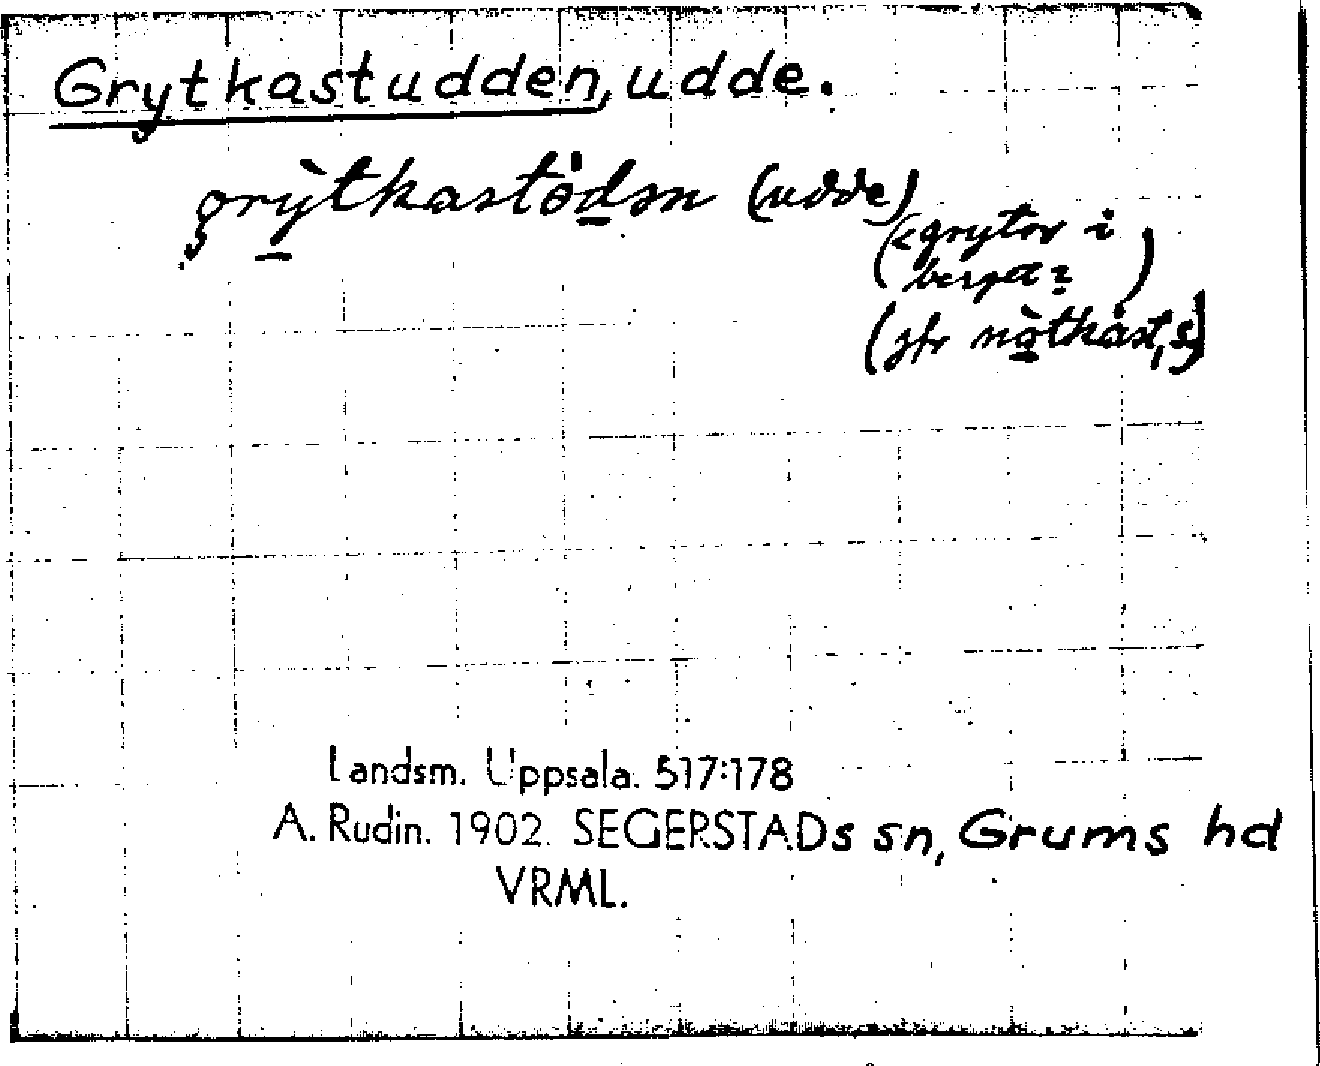 Grytkastudden, udde.
grỳtkastödən (udde)
(< grytor i
berget?)
(jfr nòtkåst, s)
Landsm. Uppsala. 517:178
A. Rudin. 1902. SEGERSTADs sn, Grums hd
VRML.